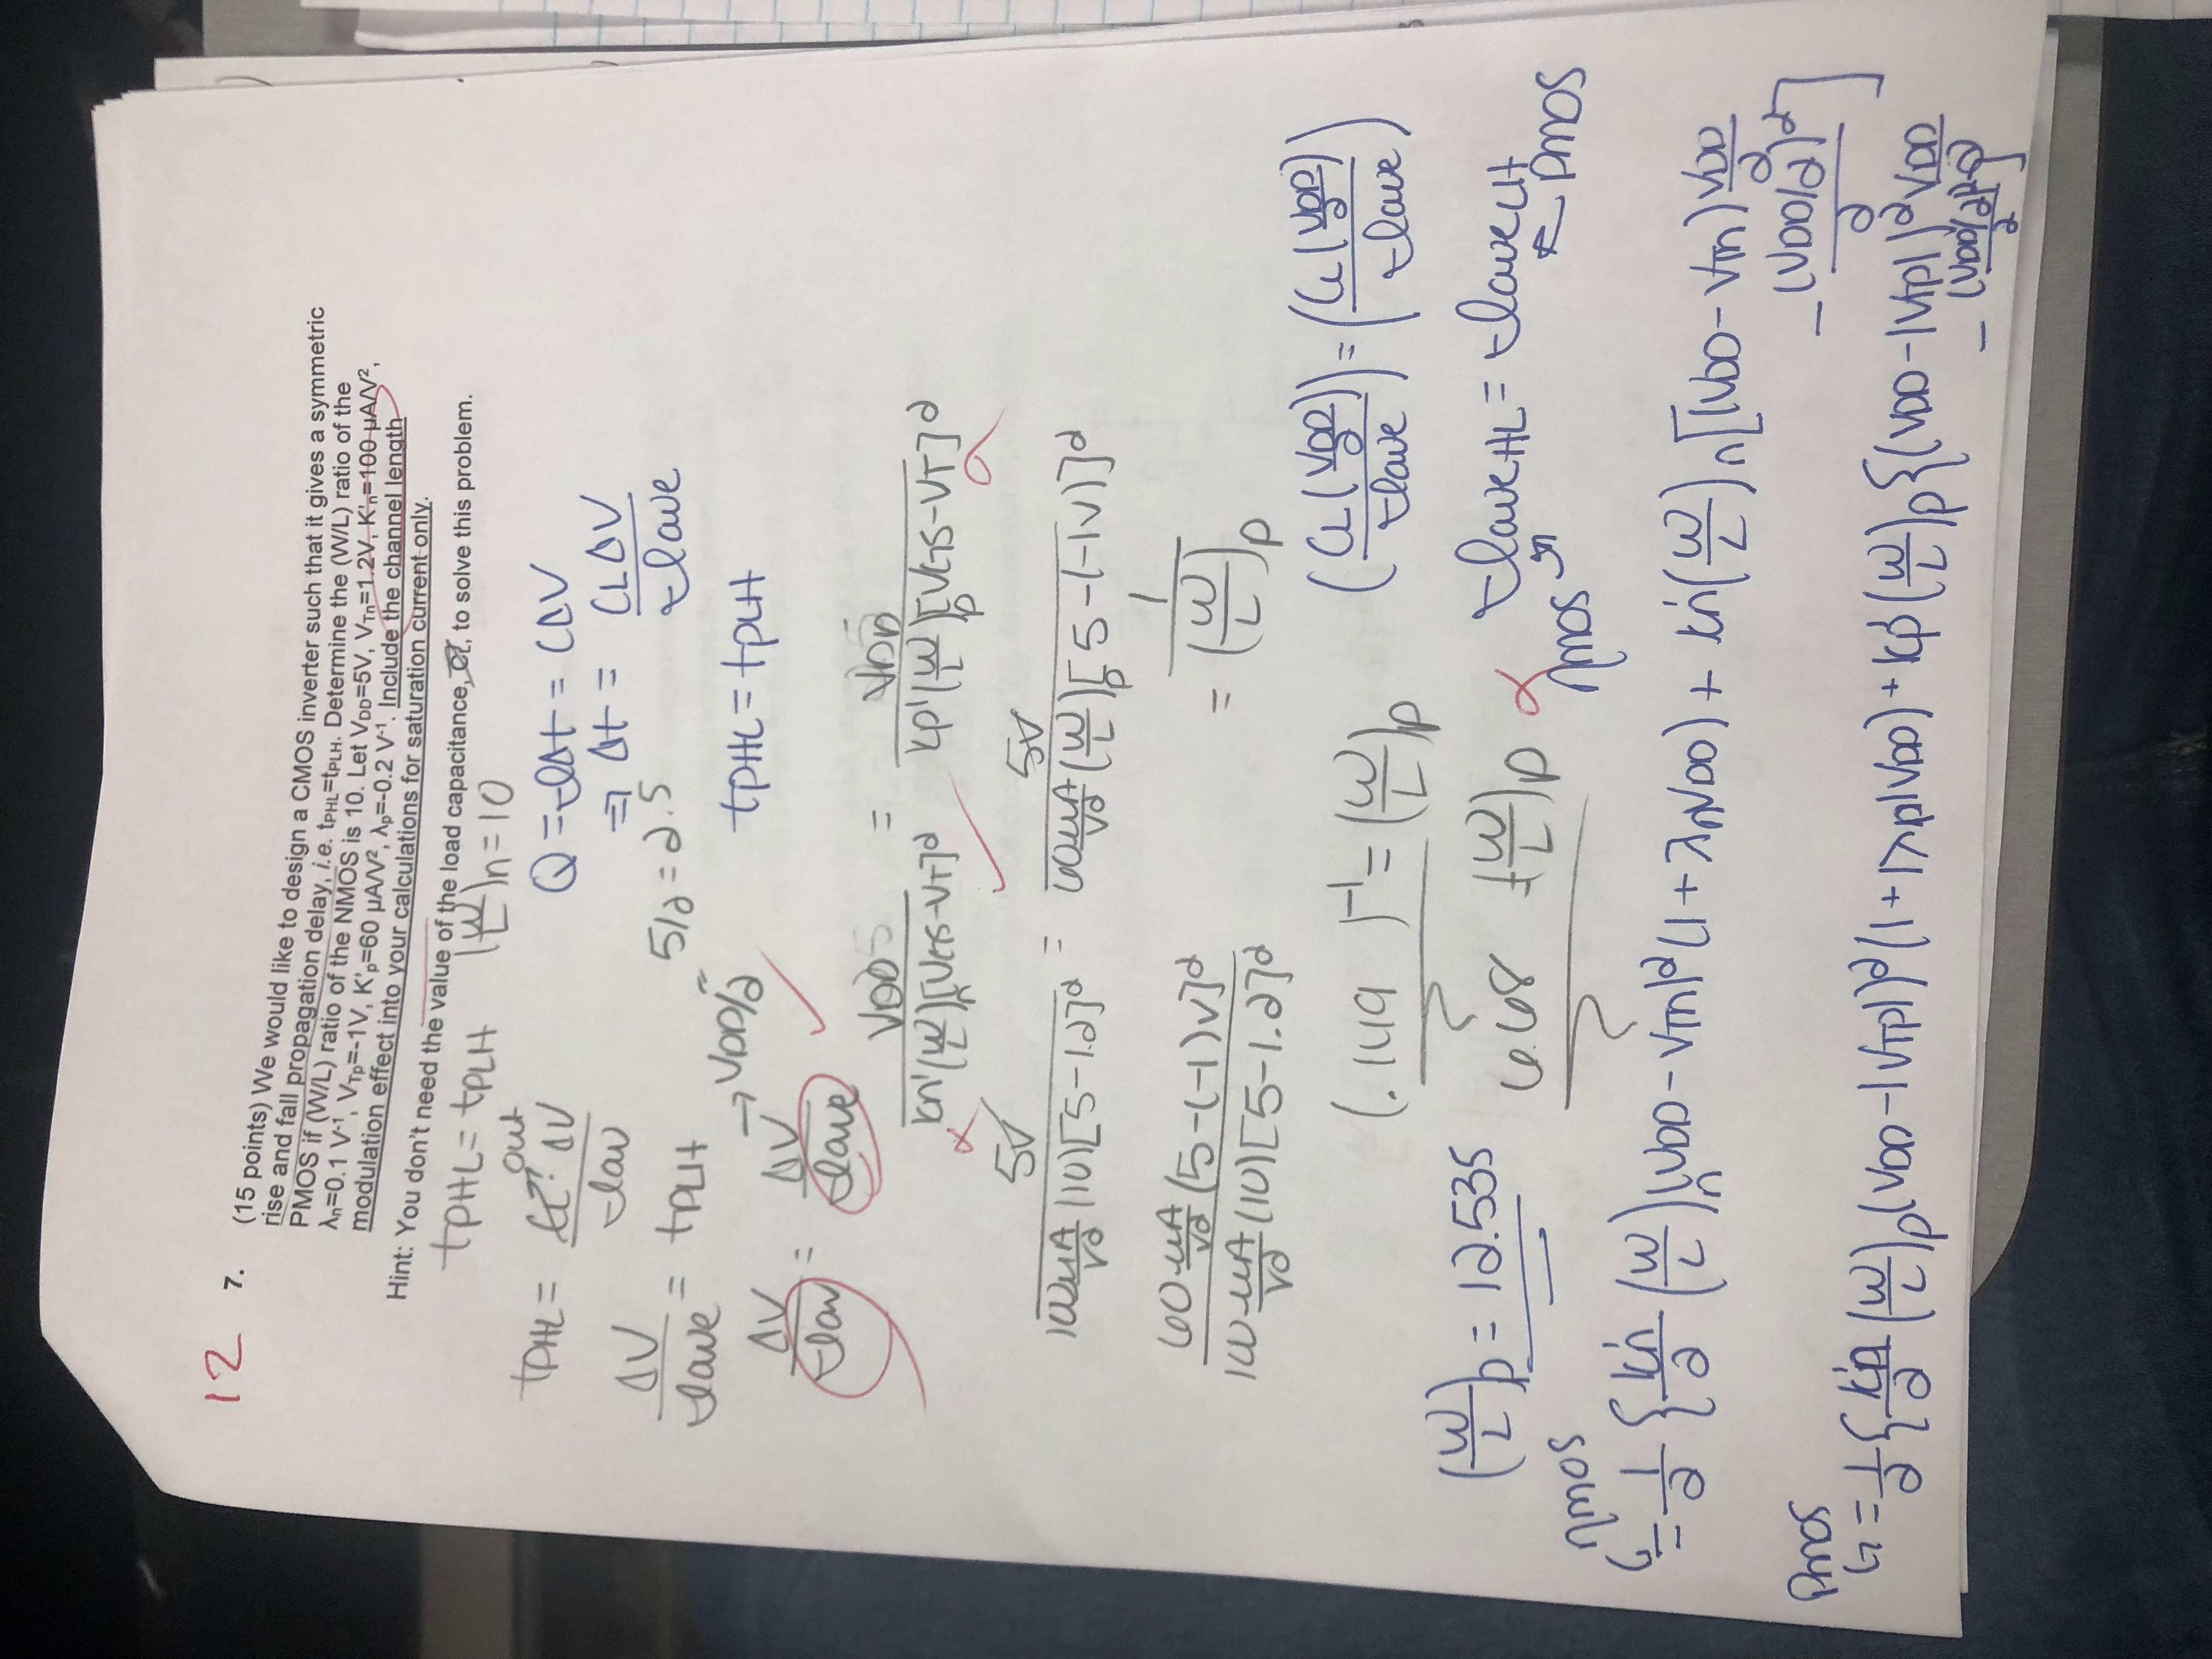 12
7. (15 points) We would like to design a CMOS inverter such that it gives a symmetric
rise and fall propagation delay, i.e. tPHL=tPLH. Determine the (W/L) ratio of the
PMOS if (W/L) ratio of the NMOS is 10. Let VDD=5V, VTn=1.2V, K'n=100 μA/V²,
λn=0.1 V⁻¹, VTp=-1V, K'p=60 μA/V², λp=-0.2 V⁻¹. Include the channel length
modulation effect into your calculations for saturation current only.
Hint: You don't need the value of the load capacitance, CL, to solve this problem.
tPHL = tPLH (W/L)n = 10
out
tPHL = CL ΔV / Iav
Q = IΔt = CΔV
⇒ Δt = CLΔV / Iave
ΔV / Iave = tPLH
5/2 = 2.5
→ VDD/2 =
tPHL = tPLH
ΔV / Iav = ΔV / Iave ✓
VDD / kn'(W/L)n[VGS-VT]² = VDD / kp'(W/L)p[VGS-VT]²
5V / 100 μA/V² (10)[5-1.2]² = 5V / 60 μA/V² (W/L)p[5-(-1V)]²
60 μA/V² (5-(-1)V]² / 100 μA/V² (10)[5-1.2]² = 1 / (W/L)p
(.149 )⁻¹ = (W/L)p
(CL(VDD/2) / Iave) = (CL(VDD/2) / Iave)
(W/L)p = 12.535
6.68 = (W/L)p
IaveHL = IaveLH
nmos PMOS
nmos
= 1/2 {kn'/2 (W/L)n (VDD - VTn)² (1 + λnVDD) + kn'(W/L)n [(VDD - VTn) VDD/2
- (VDD/2)²/2]
PMOS
= 1/2 {kp'/2 (W/L)p (VDD-|VTp|)² (1+|λp|VDD) + kp'(W/L)p {(VDD-|VTp|)² VDD/2
- (VDD/2)²/2]